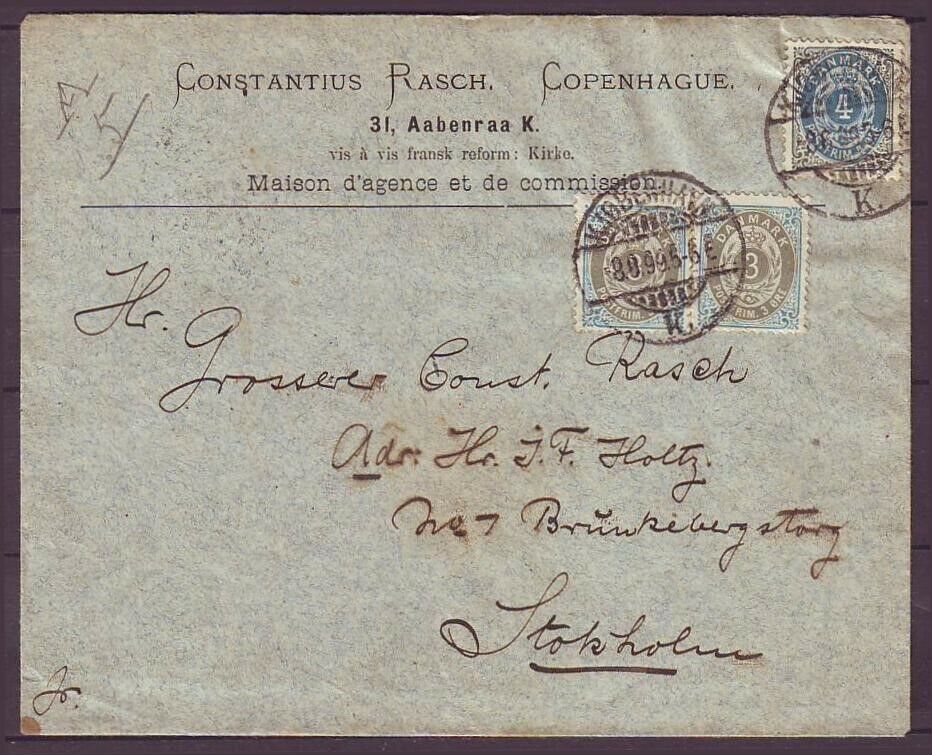 CONSTANTIUS RASCH. COPENHAGUE.
31, Aabenraa K.
vis à vis fransk reform: Kirke.
Maison d'agence et de commission.
DANMARK
4
POSTFRIM. 4 ØRE
K.
KJØBENHAVN
8.9.99.5-6E
K.
DANMARK
3
POSTFRIM. 3 ØRE
Hr.
Grosserer Const. Rasch
Adr. Hr. J. F. Holtz.
No 7 Brŭnkebergstorg
Stokholm